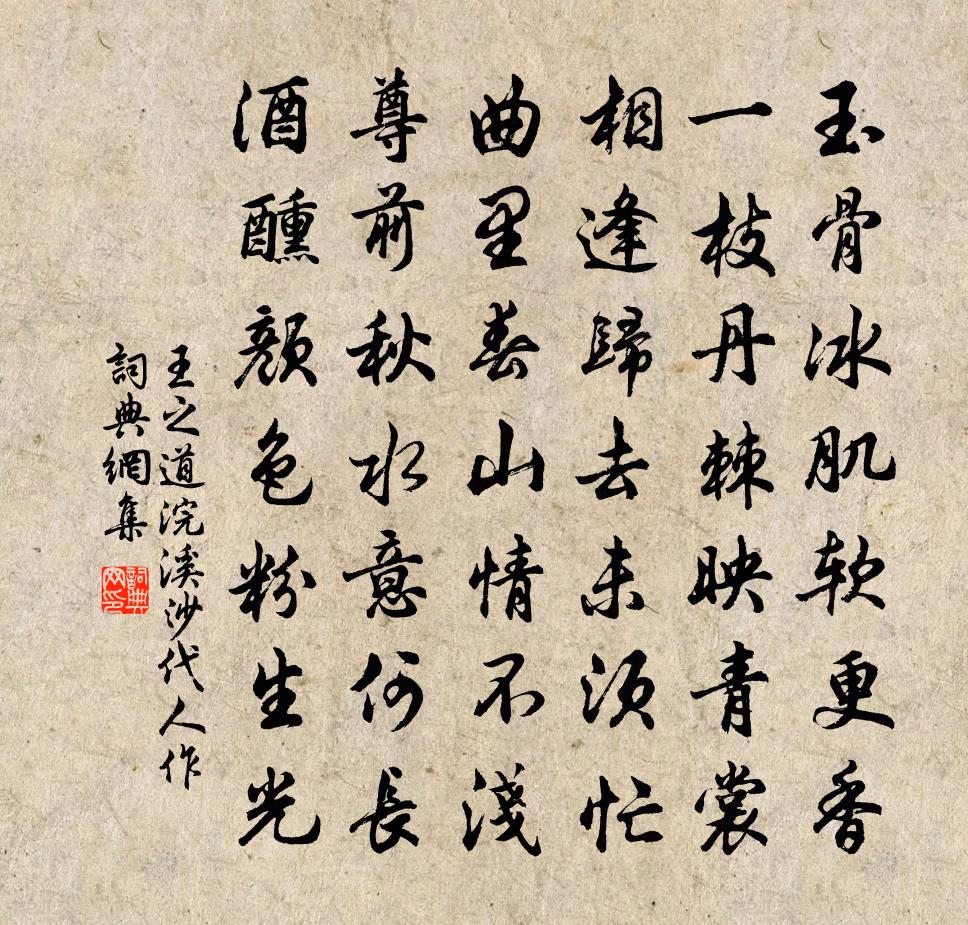 玉骨冰肌软更香
一枝丹棘映青裳
相逢歸去未須忙
曲里春山情不淺
尊前秋水意何長
酒醺顏色粉生光
王之道浣溪沙代人作
詞典網集
詞典